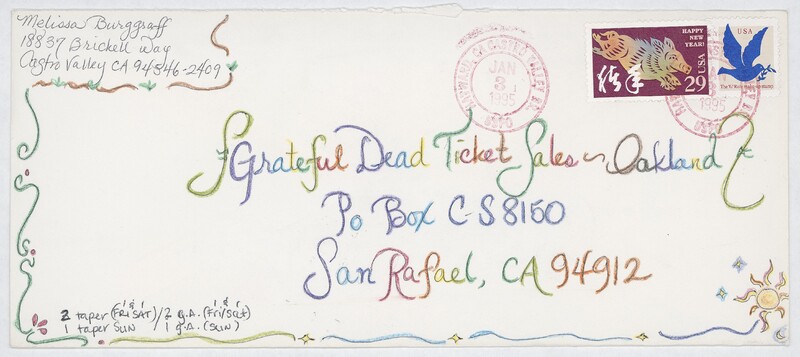 Melissa Burggraff
18837 Brickell Way
Castro Valley CA 94546-2409
HAYWARD, CA CASTRO VALLEY BR.
JAN
8
1995
USPO
HAPPY
NEW
YEAR!
29 USA
USA
1995
USPO
Grateful Dead Ticket Sales ~ Oakland
Po Box C-S 8150
San Rafael, CA 94912
2 taper (FRI & SAT) / 2 g.A. (Fri & Sat)
1 taper SUN 1 g.A. (SUN)